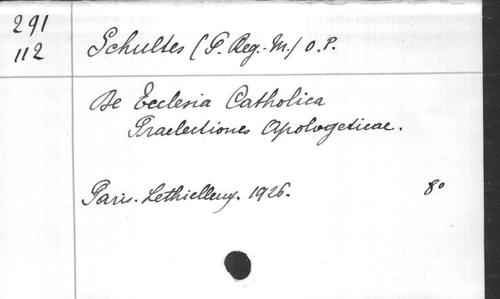 291
112
Schultes (P. Reg.-M.) O.P.
De Ecclesia Catholica
Praelectiones Apologeticae.
Paris. Lethielleux. 1926. 8º